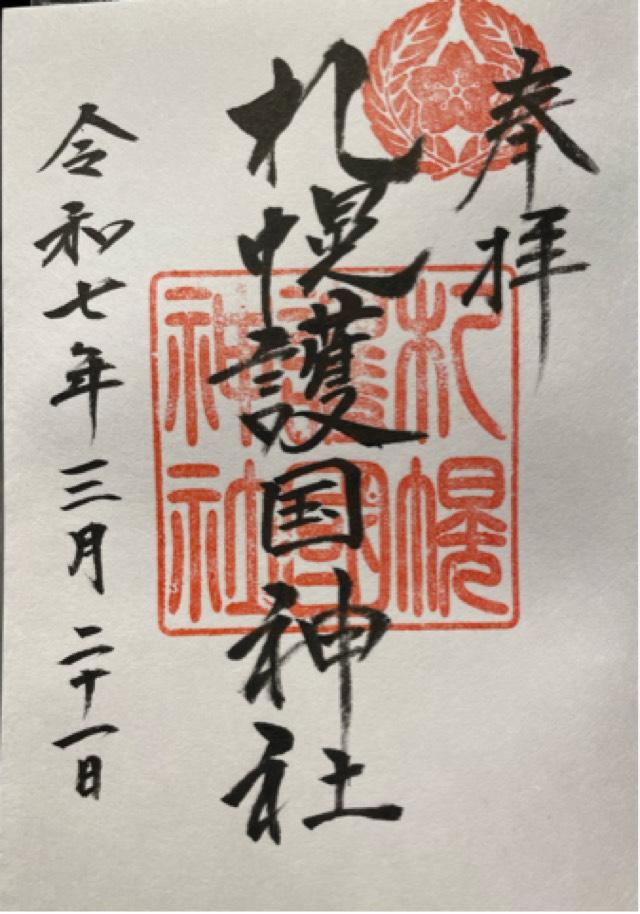 奉拝
札幌護国神社
令和七年三月二十一日
札幌
護國
神社